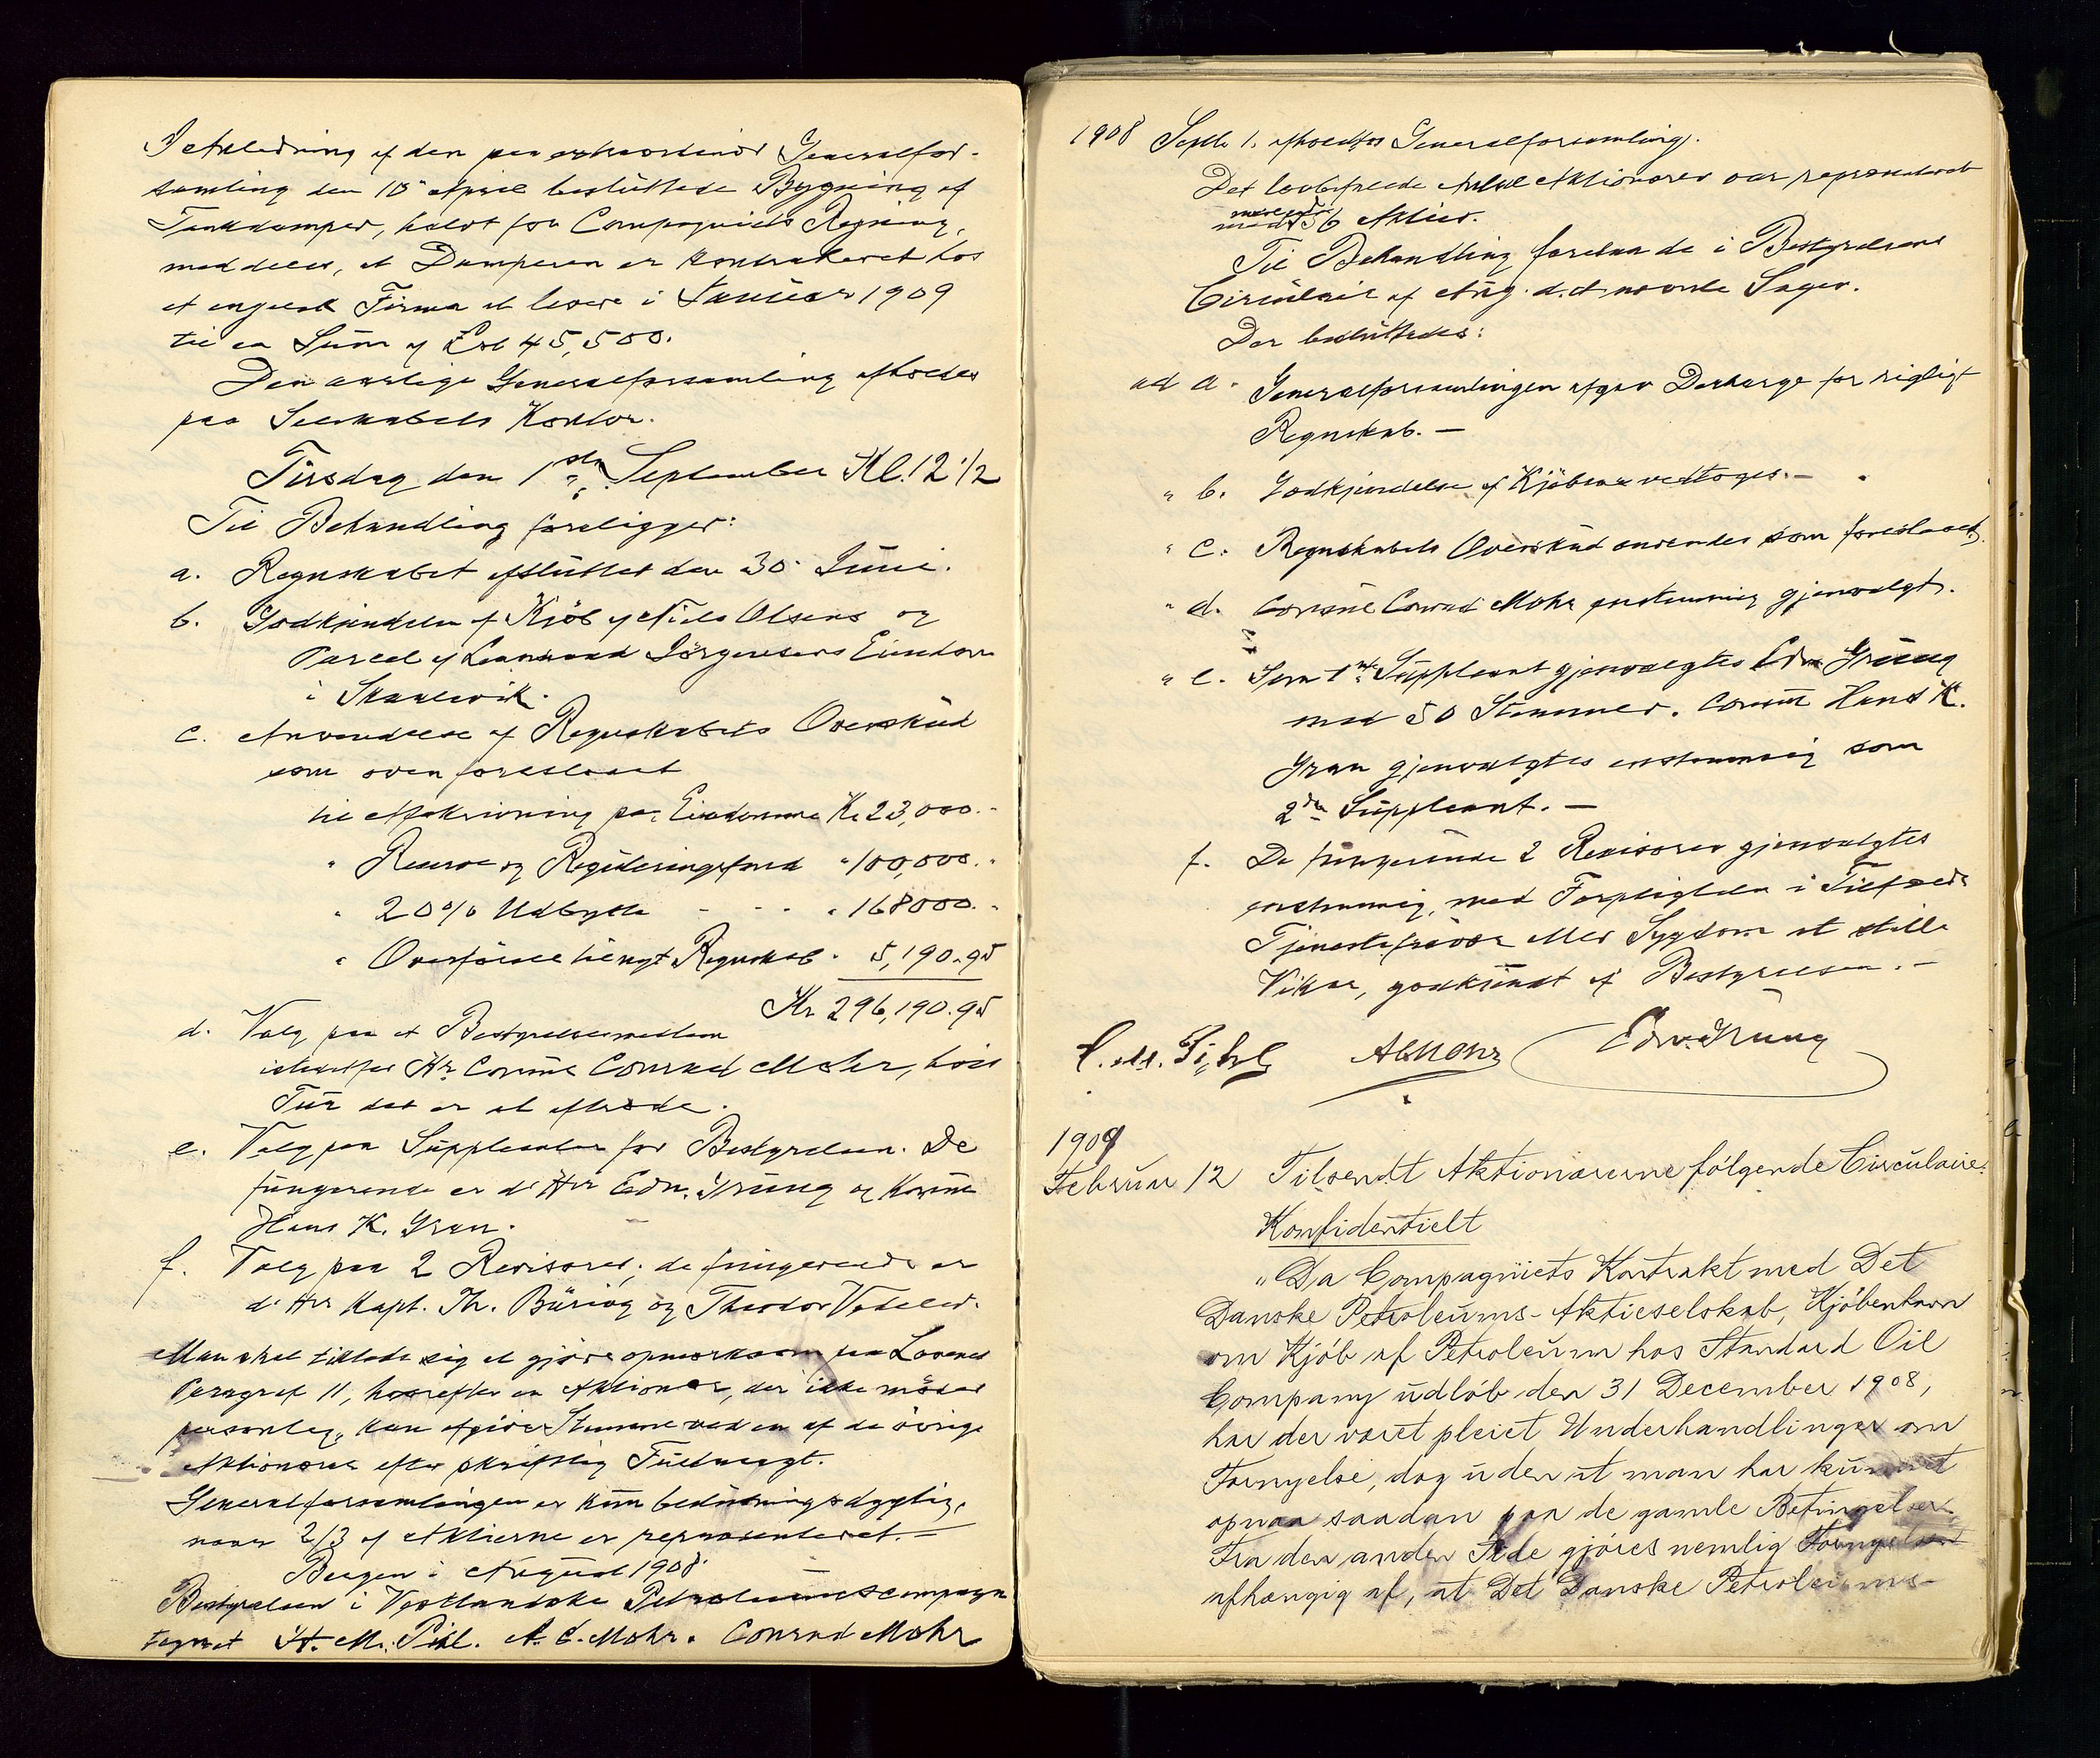 I Anledning af den paa extraordinær Generalfor-
samling den 10 April besluttede Bygning af
Tankdamper, halvt for Compagniets Regning,
meddeles, at Damperen er kontraheret hos
et engelsk Firma at levere i Januar 1909
til en Sum af £ 45,500.
Den aarlige Generalforsamling afholdes
paa Selskabets Kontor.
Tirsdag den 1ste September Kl. 12 1/2
Til Behandling foreligger:
a. Regnskabet afsluttet den 30 Juni.
b. Godkjendelse af Kjöb af Niels Olsens og
Parcel af Jörgensens Eiendom
i Skaalevik.
c. Anvendelse af Regnskabets Overskud
som oven foreslaaet
til Afskrivning paa Eiendomme Kr 23,000.-
" Reserve og Reguleringsfond " 100,000.-
" 20% Udbytte - - - " 168000.-
" Overförsel til nyt Regnskab " 5,190.95
Kr 296,190.95
d. Valg paa et Bestyrelsesmedlem
istedetfor Hr Consul Conrad Mohr, hvis
Tur det er at aftræde.
e. Valg paa Suppleanter for Bestyrelsen. De
fungerende er d'Hrr Edv. Grung og Konsul
Hans K. Gran.
f. Valg paa 2 Revisorer, de fungerende er
d'Hrr Kapt. Th. Büring og Theodor Vedeler.
Man skal tillade sig at gjöre opmærksom paa Lovenes
Paragraf 11, hvorefter en Aktionær, der ikke möder
personlig, kan afgive Stemme ved en af de övrige
Aktionærer efter skriftlig Fuldmagt.
Generalforsamlingen er kun beslutningsdygtig,
naar 2/3 af Aktierne er repræsenteret.-
Bergen i August 1908.
Bestyrelsen i Vestlandske Petroleumscompagni
tegnet H. M. Pihl. A. C. Mohr. Conrad Mohr
1908 Septb 1. afholdtes Generalforsamling.
Det lovbefalede Antal Aktionærer var repræsenteret
med 56 Aktier.
Til Behandling forelaa de i Bestyrelsens
Circulaire af Aug. d.A. nævnte Sager.
Der besluttedes:
ad a. Generalforsamlingen afgav Decharge for rigtigt
Regnskab. -
" b. Godkjendelse af Kjöbene vedtoges. -
" c. Regnskabets Overskud anvendes som foreslaaet.
" d. Consul Conrad Mohr enstemmig gjenvalgt.
" e. Som 1ste Suppleant gjenvalgtes Edv Grung
med 50 Stemmer. Consul Hans K.
Gran gjenvalgtes enstemmig som
2den Suppleant. -
f. De fungerende 2 Revisorer gjenvalgtes
enstemmig, med Forpligtelse i Tilfælde
Tjenestefravær eller Sygdom at stille
Vikar, godkjendt af Bestyrelsen. -
H. M. Pihl ACMohr Edv. Grung
1909
Februar 12 Tilsendt Aktionærerne fölgende Circulaire:
Konfidentielt
"Da Compagniets Kontrakt med Det
Danske Petroleums-Aktieselskab, Kjöbenhavn
om Kjöb af Petroleum hos Standard Oil
Company udlöb den 31 December 1908,
har der været pleiet Underhandlinger om
Fornyelse, dog uden at man har kunnet
opnaa saadan paa de gamle Betingelser.
Fra den anden Side gjöres nemlig Fornyelsen
afhængig af, at Det Danske Petroleums-